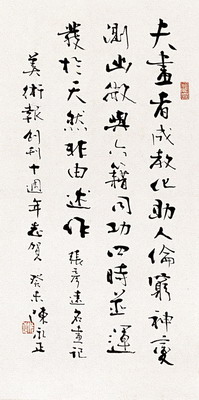 夫畫者成教化助人倫窮神變
測幽微與六籍同功四時並運
發於天然非由述作 張彥遠名畫記
美術報創刊十週年志賀 癸未 陳永正